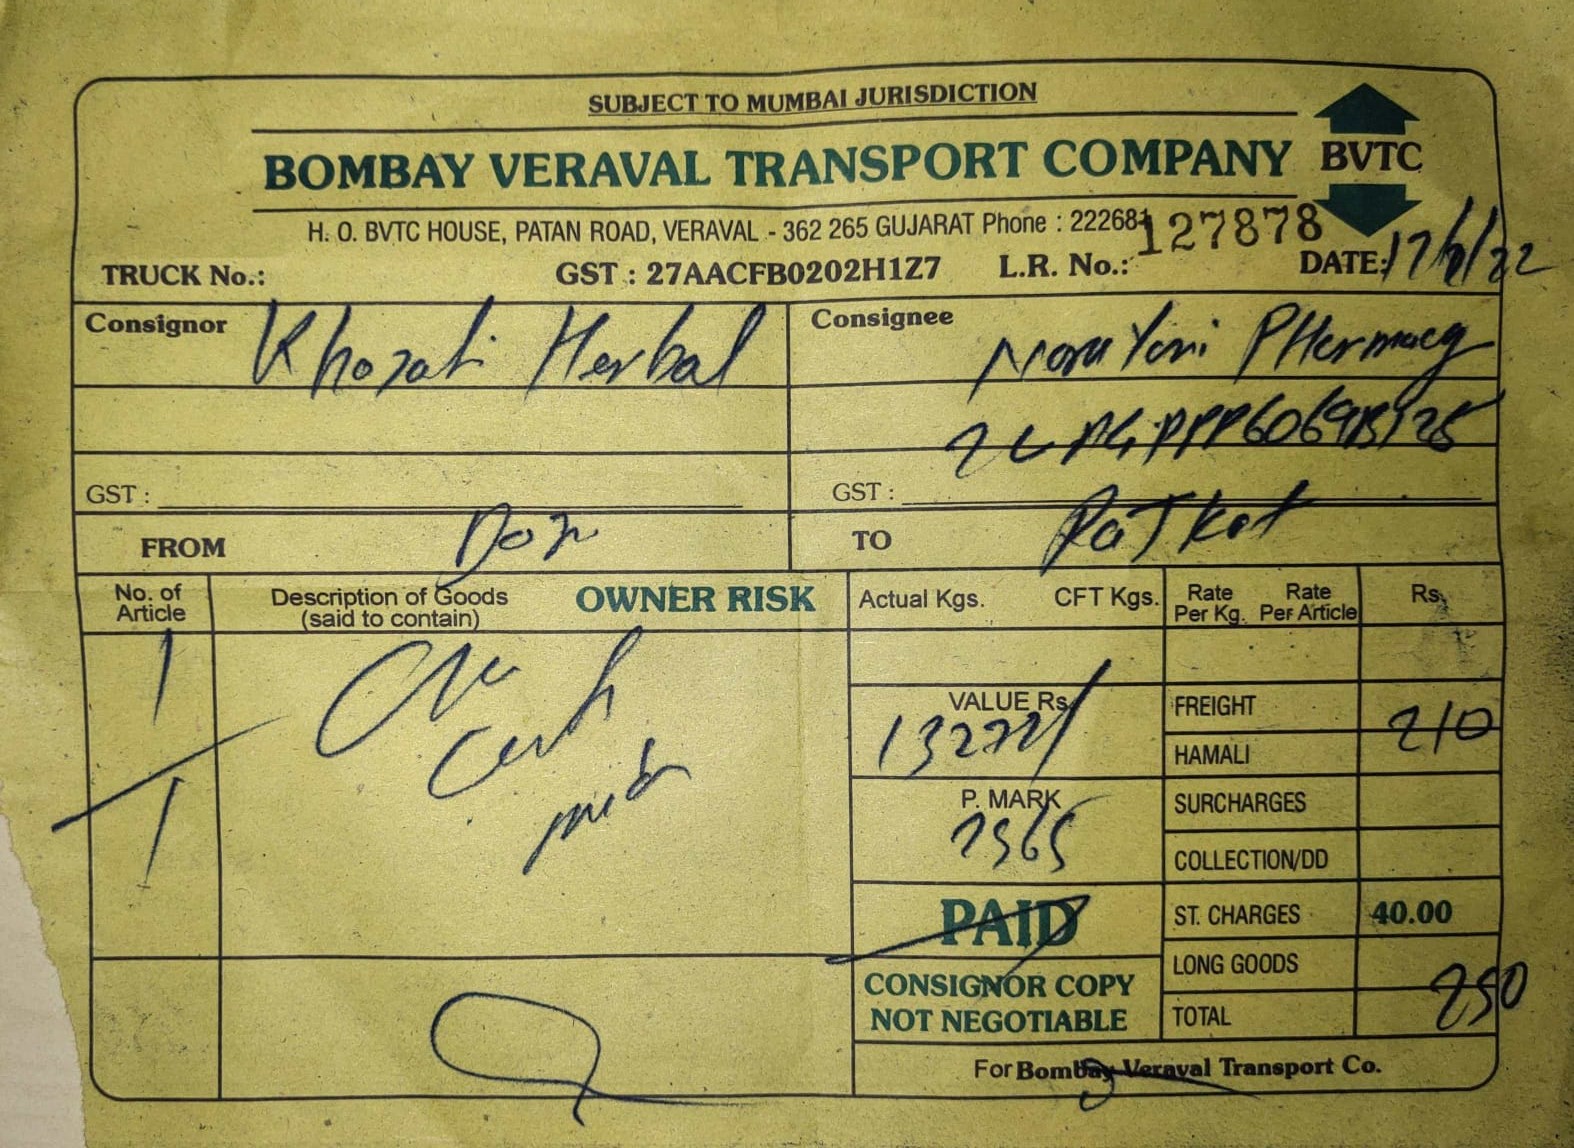 SUBJECT TO MUMBAI JURISDICTION
BOMBAY VERAVAL TRANSPORT COMPANY
BVTC
H. O. BVTC HOUSE, PATAN ROAD, VERAVAL - 362 265 GUJARAT Phone : 222681
TRUCK No.: GST : 27AACFB0202H1Z7 L.R. No.: 127878 DATE:
Consignor Herbal
Consignee PHermacy
GST :
GST :
FROM
TO RaJkot
No. of Article
Description of Goods (said to contain)
OWNER RISK
Actual Kgs. CFT Kgs.
Rate Per Kg. Rate Per Article
Rs.
1
1
VALUE Rs.
P. MARK
PAID
CONSIGNOR COPY
NOT NEGOTIABLE
FREIGHT 210
HAMALI
SURCHARGES
COLLECTION/DD
ST. CHARGES 40.00
LONG GOODS
TOTAL 250
For Bombay Veraval Transport Co.